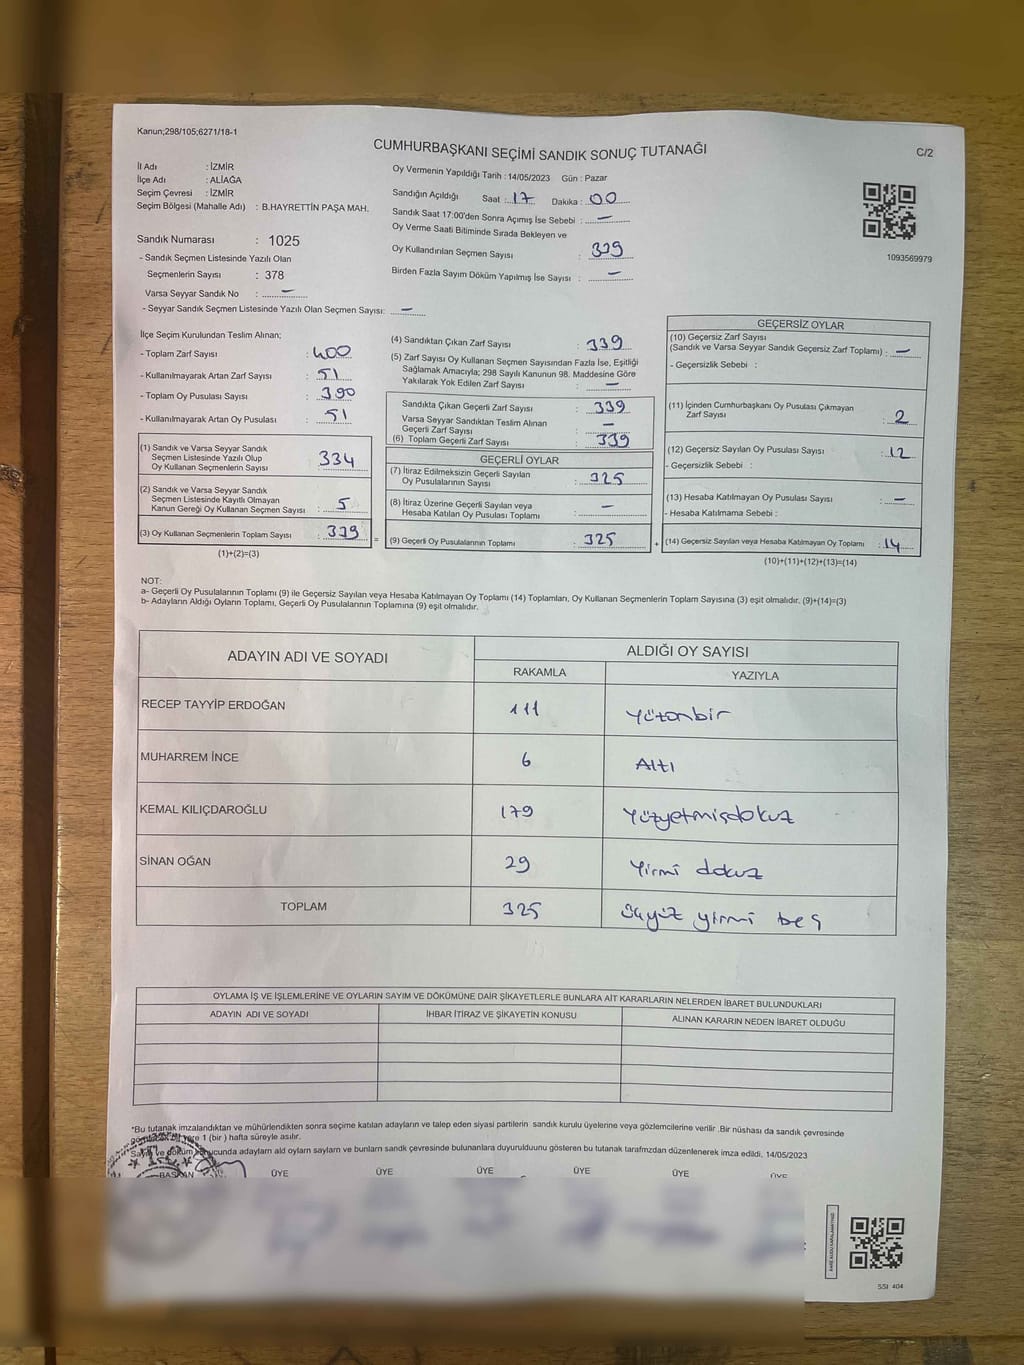 Kanun;298/105;6271/18-1
CUMHURBAŞKANI SEÇİMİ SANDIK SONUÇ TUTANAĞI
C/2
İl Adı : İZMİR
İlçe Adı : ALİAĞA
Seçim Çevresi : İZMİR
Seçim Bölgesi (Mahalle Adı) : B.HAYRETTİN PAŞA MAH.
Oy Vermenin Yapıldığı Tarih : 14/05/2023 Gün : Pazar
Sandığın Açıldığı Saat : 17 Dakika : 00
Sandık Saat 17:00'den Sonra Açımış İse Sebebi : —
Oy Verme Saati Bitiminde Sırada Bekleyen ve
Oy Kullandırılan Seçmen Sayısı : 339
Birden Fazla Sayım Döküm Yapılmış İse Sayısı : —
1093569979
Sandık Numarası : 1025
- Sandık Seçmen Listesinde Yazılı Olan
Seçmenlerin Sayısı : 378
Varsa Seyyar Sandık No : —
- Seyyar Sandık Seçmen Listesinde Yazılı Olan Seçmen Sayısı: —
İlçe Seçim Kurulundan Teslim Alınan;
- Toplam Zarf Sayısı : 400
- Kullanılmayarak Artan Zarf Sayısı : 51
- Toplam Oy Pusulası Sayısı : 390
- Kullanılmayarak Artan Oy Pusulası : 51
(1) Sandık ve Varsa Seyyar Sandık
Seçmen Listesinde Yazılı Olup
Oy Kullanan Seçmenlerin Sayısı : 334
(2) Sandık ve Varsa Seyyar Sandık
Seçmen Listesinde Kayıtlı Olmayan
Kanun Gereği Oy Kullanan Seçmen Sayısı : 5
(3) Oy Kullanan Seçmenlerin Toplam Sayısı : 339 =
(1)+(2)=(3)
(4) Sandıktan Çıkan Zarf Sayısı : 339
(5) Zarf Sayısı Oy Kullanan Seçmen Sayısından Fazla İse, Eşitliği
Sağlamak Amacıyla; 298 Sayılı Kanunun 98. Maddesine Göre
Yakılarak Yok Edilen Zarf Sayısı : —
Sandıkta Çıkan Geçerli Zarf Sayısı : 339
Varsa Seyyar Sandıktan Teslim Alınan
Geçerli Zarf Sayısı : —
(6) Toplam Geçerli Zarf Sayısı : 339
GEÇERLİ OYLAR
(7) İtiraz Edilmeksizin Geçerli Sayılan
Oy Pusulalarının Sayısı : 325
(8) İtiraz Üzerine Geçerli Sayılan veya
Hesaba Katılan Oy Pusulası Toplamı : —
(9) Geçerli Oy Pusulalarının Toplamı : 325 +
GEÇERSİZ OYLAR
(10) Geçersiz Zarf Sayısı
(Sandık ve Varsa Seyyar Sandık Geçersiz Zarf Toplamı) : —
- Geçersizlik Sebebi :
(11) İçinden Cumhurbaşkanı Oy Pusulası Çıkmayan
Zarf Sayısı : 2
(12) Geçersiz Sayılan Oy Pusulası Sayısı : 12
- Geçersizlik Sebebi :
(13) Hesaba Katılmayan Oy Pusulası Sayısı : —
- Hesaba Katılmama Sebebi :
(14) Geçersiz Sayılan veya Hesaba Katılmayan Oy Toplamı : 14
(10)+(11)+(12)+(13)=(14)
NOT:
a- Geçerli Oy Pusulalarının Toplamı (9) ile Geçersiz Sayılan veya Hesaba Katılmayan Oy Toplamı (14) Toplamları, Oy Kullanan Seçmenlerin Toplam Sayısına (3) eşit olmalıdır. (9)+(14)=(3)
b- Adayların Aldığı Oyların Toplamı, Geçerli Oy Pusulalarının Toplamına (9) eşit olmalıdır.
ADAYIN ADI VE SOYADI ALDIĞI OY SAYISI
RAKAMLA YAZIYLA
RECEP TAYYİP ERDOĞAN 111 Yüzonbir
MUHARREM İNCE 6 Altı
KEMAL KILIÇDAROĞLU 179 Yüzyetmişdokuz
SİNAN OĞAN 29 Yirmi dokuz
TOPLAM 325 üçyüz yirmi beş
OYLAMA İŞ VE İŞLEMLERİNE VE OYLARIN SAYIM VE DÖKÜMÜNE DAİR ŞİKAYETLERLE BUNLARA AİT KARARLARIN NELERDEN İBARET BULUNDUKLARI
ADAYIN ADI VE SOYADI İHBAR İTİRAZ VE ŞİKAYETİN KONUSU ALINAN KARARIN NEDEN İBARET OLDUĞU
*Bu tutanak imzalandıktan ve mühürlendikten sonra seçime katılan adayların ve talep eden siyasi partilerin sandık kurulu üyelerine veya gözlemcilerine verilir .Bir nüshası da sandık çevresinde
yere 1 (bir ) hafta süreyle asılır.
Sayım ve döküm sonucunda adayların ald oyların sayların ve bunların sandk çevresinde bulunanlara duyurulduunu gösteren bu tutanak tarafmzdan düzenlenerek imza edildi. 14/05/2023
BAŞKAN ÜYE ÜYE ÜYE ÜYE ÜYE ÜYE
551 404